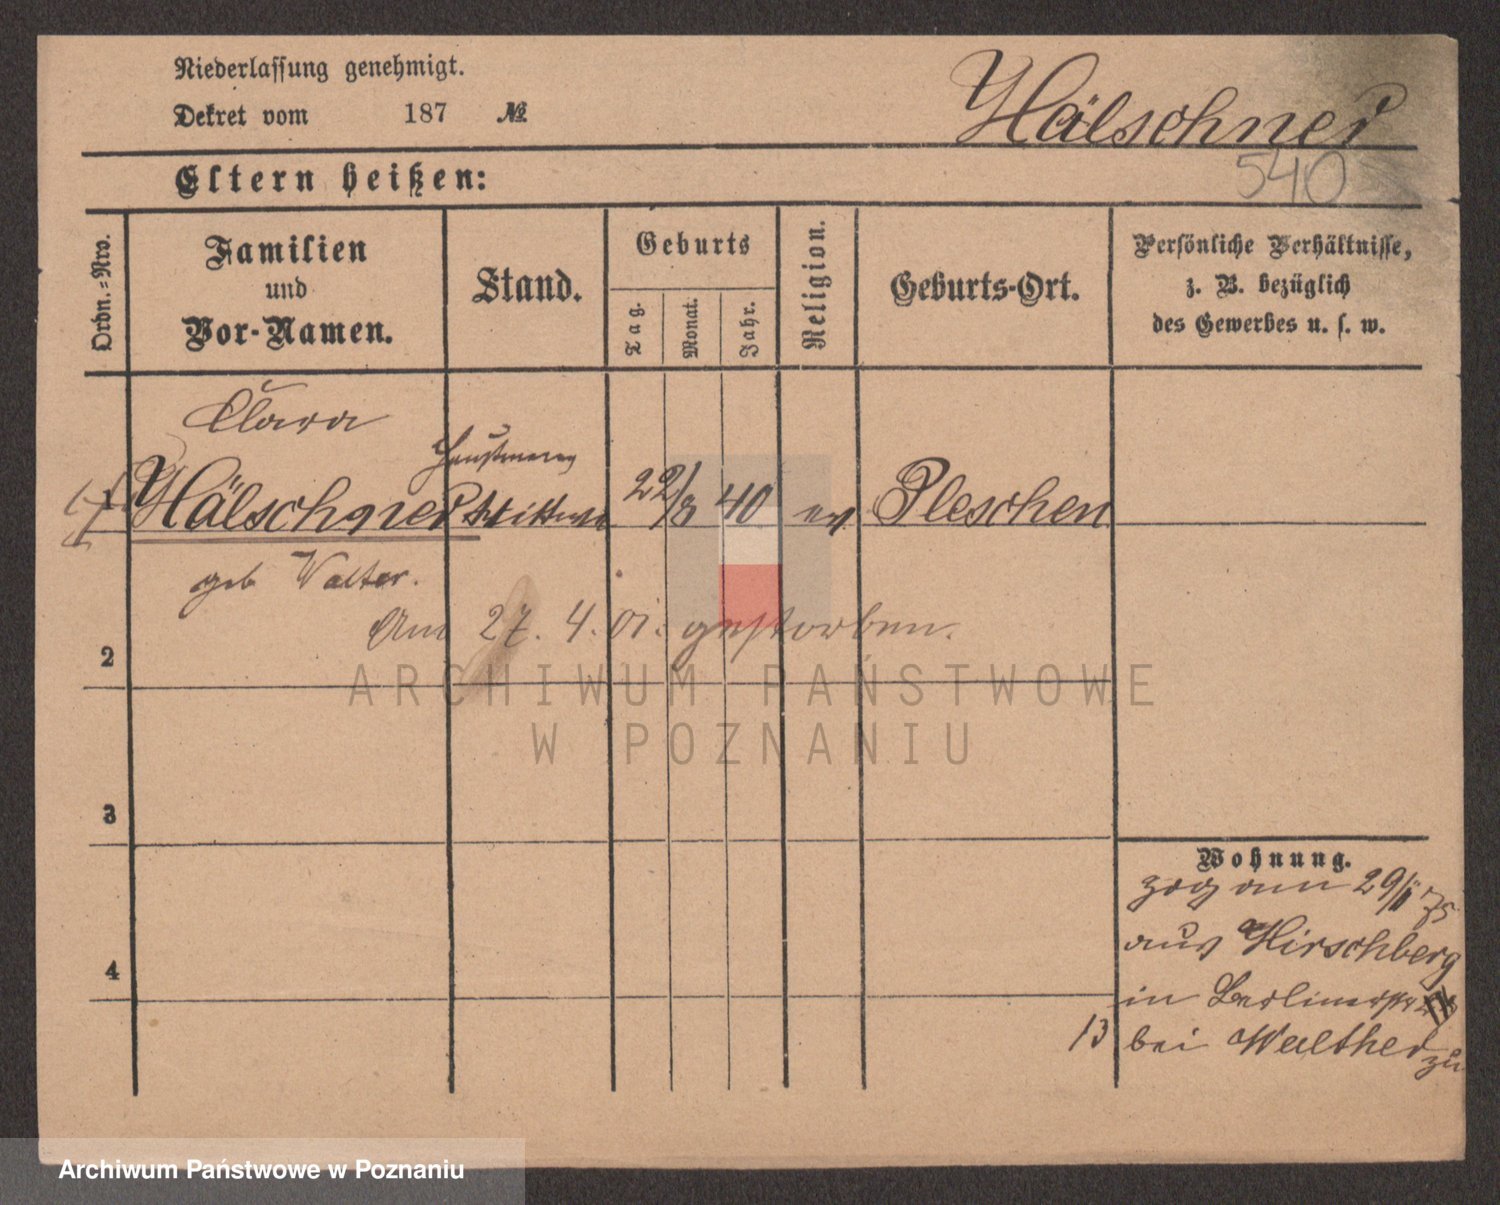 Niederlassung genehmigt.
Dekret vom 187 №
Hälschner
540
Eltern heißen:
Ordn.=Nro.
Familien
und
Vor-Namen.
Stand.
Geburts
Tag.
Monat.
Jahr.
Religion.
Geburts-Ort.
Persönliche Verhältnisse,
z. B. bezüglich
des Gewerbes u. s. w.
Clara
1 Hälschner Wittwe 22/8 40 ev Pleschen
geb Walter.
Am 27. 4. 01. gestorben.
2
3
4
Wohnung.
zog am 29/ 75
aus Hirschberg
in Berlinerstr
13 bei Walther zu
ARCHIWUM PAŃSTWOWE
W POZNANIU
Archiwum Państwowe w Poznaniu